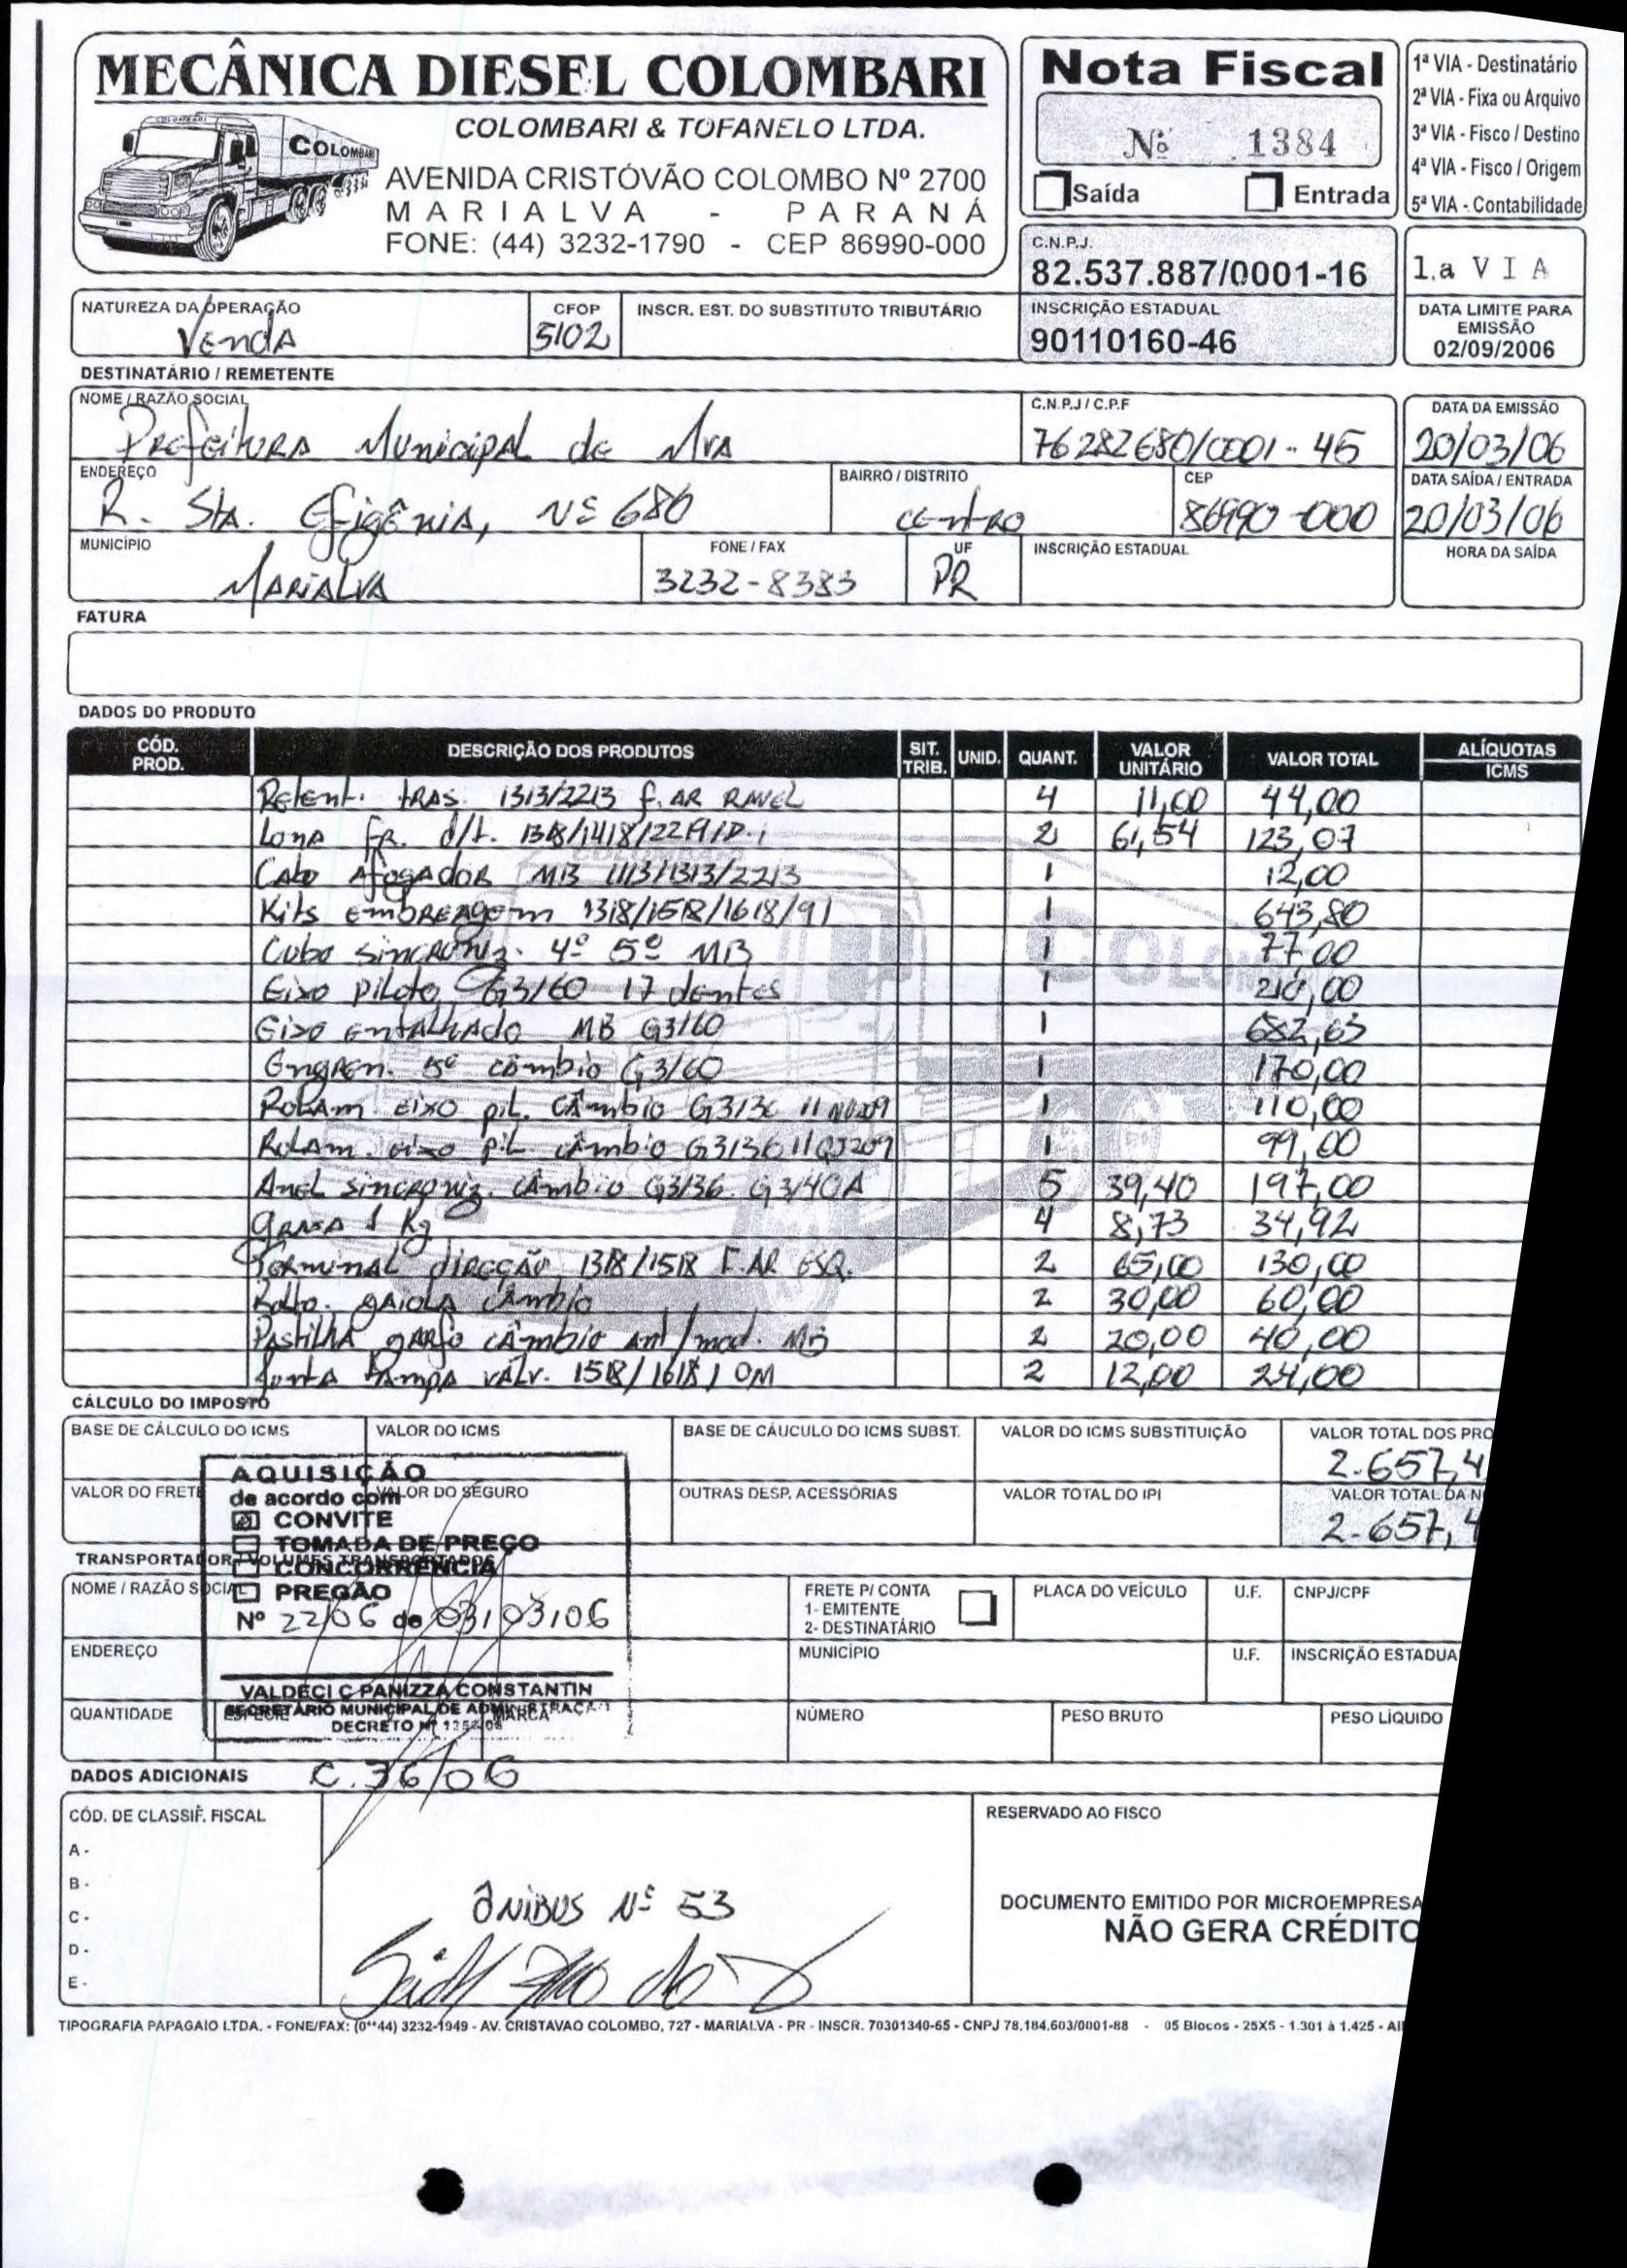 MECÂNICA DIESEL COLOMBARI
COLOMBARI & TOFANELO LTDA.
COLOMBARI
COLOMBARI
AVENIDA CRISTÓVÃO COLOMBO Nº 2700
MARIALVA - PARANÁ
FONE: (44) 3232-1790 - CEP 86990-000
Nota Fiscal
Nº 1384
Saída Entrada
1ª VIA - Destinatário
2ª VIA - Fixa ou Arquivo
3ª VIA - Fisco / Destino
4ª VIA - Fisco / Origem
5ª VIA - Contabilidade
C.N.P.J.
82.537.887/0001-16
1.a VIA
NATUREZA DA OPERAÇÃO CFOP INSCR. EST. DO SUBSTITUTO TRIBUTÁRIO
Venda 5102
INSCRIÇÃO ESTADUAL
90110160-46
DATA LIMITE PARA
EMISSÃO
02/09/2006
DESTINATÁRIO / REMETENTE
NOME / RAZÃO SOCIAL C.N.P.J / C.P.F DATA DA EMISSÃO
Prefeitura Municipal de Mva 76282680/0001-45 20/03/06
ENDEREÇO BAIRRO / DISTRITO CEP DATA SAÍDA / ENTRADA
R. Sta. Efigênia, Nº 680 centro 86990-000 20/03/06
MUNICÍPIO FONE / FAX UF INSCRIÇÃO ESTADUAL HORA DA SAÍDA
Marialva 3232-8383 PR
FATURA
DADOS DO PRODUTO
CÓD. PROD. DESCRIÇÃO DOS PRODUTOS SIT. TRIB. UNID. QUANT. VALOR UNITÁRIO VALOR TOTAL ALÍQUOTAS ICMS
Retent. tras. 1313/2213 f. ar 4 11,00 44,00
Lona fr. d/t. 1318/1418/ 2 61,54 123,07
Cabo afogador MB 1113/1313/2213 1 12,00
Kits embreagem 1318/1518/1618/91 1 643,80
Cubo sincroniz. 4º 5º MB 1 77,00
Eixo piloto G3/60 17 dentes 1 210,00
Eixo entalhado MB G3/60 1 682,63
Engren. 5º câmbio G3/60 1 170,00
Rolam. eixo pil. câmbio G3/36 1 110,00
Rolam. eixo pil. câmbio G3/36 1 99,00
Anel sincroniz. câmbio G3/36 G3/40A 5 39,40 197,00
graxa 1 Kg 4 8,73 34,92
Terminal direção 1318/1518 F. AR ESQ. 2 65,00 130,00
gaiola câmbio 2 30,00 60,00
Pastilha garfo câmbio ant/mod. MB 2 20,00 40,00
Junta tampa válv. 1518/1618/ OM 2 12,00 24,00
CÁLCULO DO IMPOSTO
BASE DE CÁLCULO DO ICMS VALOR DO ICMS BASE DE CÁUCULO DO ICMS SUBST. VALOR DO ICMS SUBSTITUIÇÃO VALOR TOTAL DOS PRO
2.657,4
VALOR DO FRETE VALOR DO SEGURO OUTRAS DESP. ACESSÓRIAS VALOR TOTAL DO IPI VALOR TOTAL DA N
2.657,4
AQUISIÇÃO
de acordo com
CONVITE
TOMADA DE PREÇO
CONCORRÊNCIA
PREGÃO
Nº 22/06 de 03/03/06
VALDECI C PANIZZA CONSTANTIN
SECRETÁRIO MUNICIPAL DE ADMINISTRAÇÃO
DECRETO Nº
TRANSPORTADOR / VOLUMES TRANSPORTADOS
NOME / RAZÃO SOCIAL FRETE P/ CONTA PLACA DO VEÍCULO U.F. CNPJ/CPF
1- EMITENTE
2- DESTINATÁRIO
ENDEREÇO MUNICÍPIO U.F. INSCRIÇÃO ESTADUA
QUANTIDADE ESPÉCIE MARCA NÚMERO PESO BRUTO PESO LÍQUIDO
DADOS ADICIONAIS C.36/06
CÓD. DE CLASSIF. FISCAL RESERVADO AO FISCO
A -
B -
C -
D -
E -
Ônibus Nº 53
DOCUMENTO EMITIDO POR MICROEMPRESA
NÃO GERA CRÉDITO
TIPOGRAFIA PAPAGAIO LTDA. - FONE/FAX: (0**44) 3232-1949 - AV. CRISTAVAO COLOMBO, 727 - MARIALVA - PR - INSCR. 70301340-65 - CNPJ 78.184.603/0001-88 - 05 Blocos - 25X5 - 1.301 à 1.425 - AI